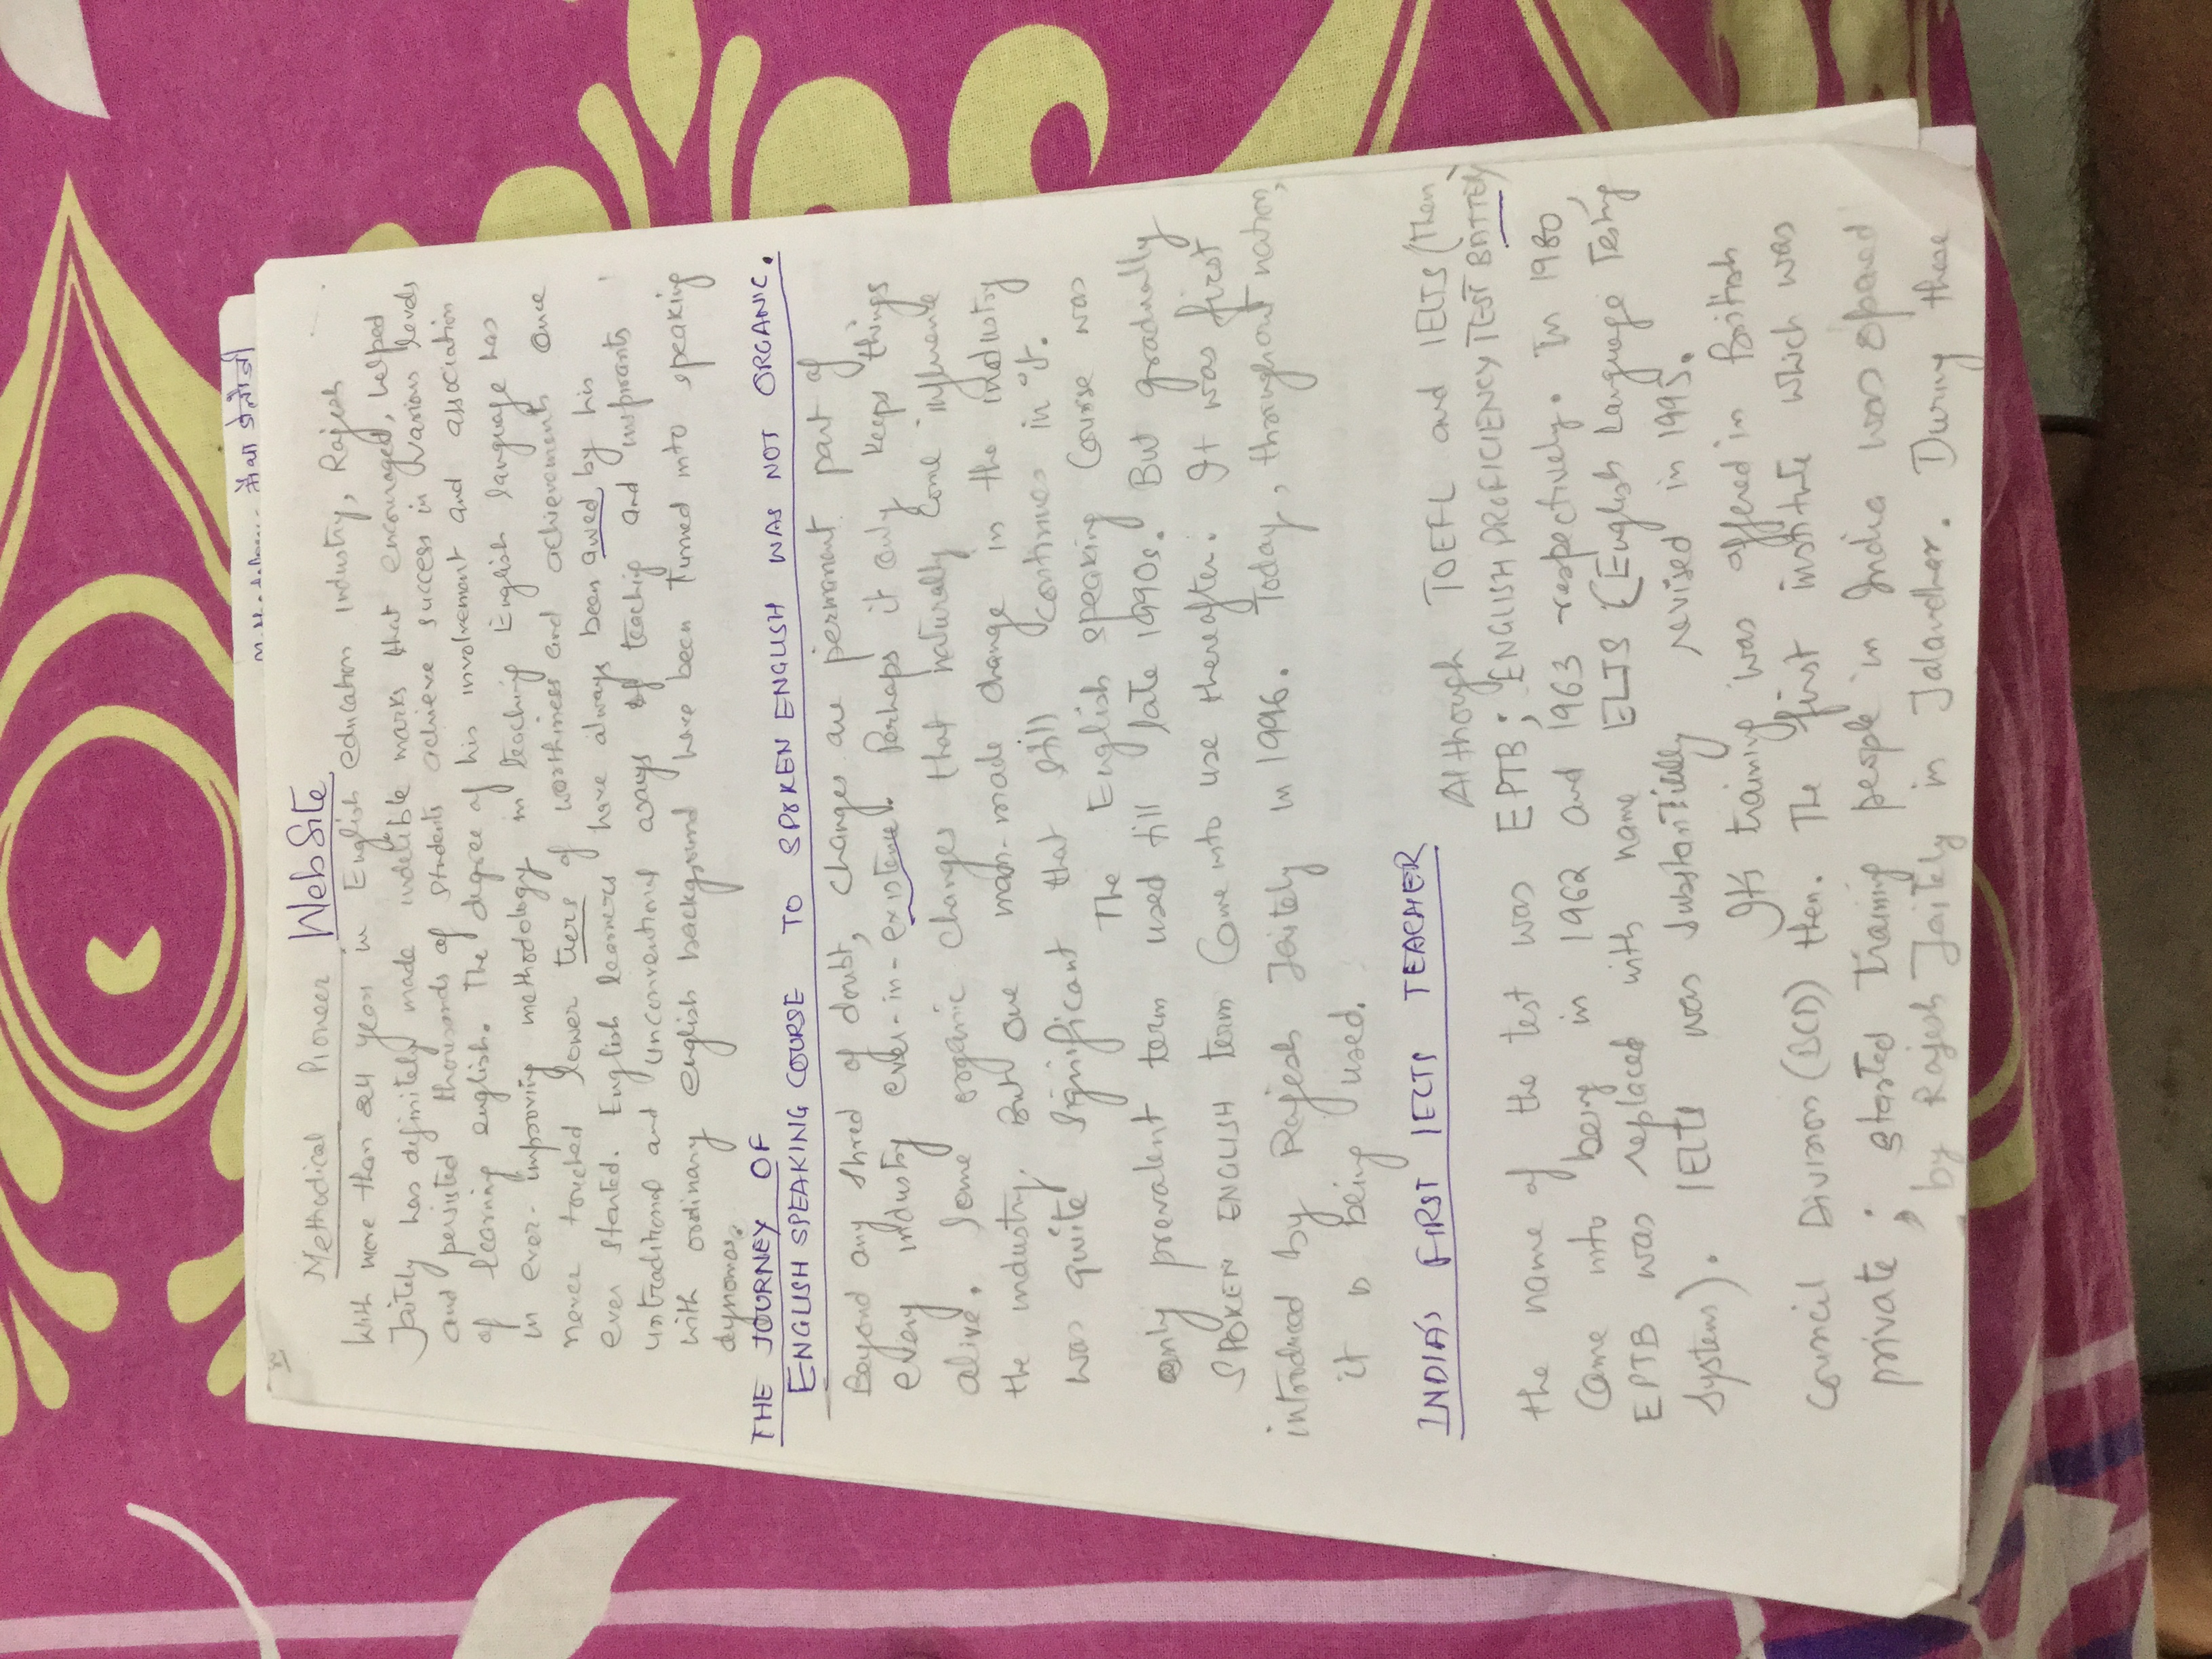 मैथाडोलौजी
Methodical Pioneer WebSite
With more than 24 years in English education industry, Rajesh
Jaitely has definitely made indelible marks that encouraged, helped
and persisted thousands of students achieve success in various levels
of learning english. The degree of his involvement and association
in ever-improving methodology in teaching English language has
never touched lower tiers of worthiness and achievements once
ever started. English learners have always been awed by his
untraditional and unconventional ways of teaching and inspirants
with ordinary english background have been turned into speaking
dynomos.
THE JOURNEY OF
ENGLISH SPEAKING COURSE TO SPOKEN ENGLISH WAS NOT ORGANIC.
Beyond any shred of doubt, changes are permanent part of
every industry ever-in-existence. Perhaps it only keeps things
alive. Some organic changes that naturally come influence
the industry. But one man-made change in the industry
was quite significant that still continues in it.
The English speaking Course was
only prevalent term used till late 1990s. But gradually
SPOKEN ENGLISH term came into use thereafter. It was first
introduced by Rajesh Jaitely in 1996. Today, throughout nation,
it is being used.
INDIA'S FIRST IELTS TEACHER
Although TOEFL and IELTS (Then
the name of the test was EPTB; ENGLISH PROFICIENCY TEST BATTERY)
came into being in 1962 and 1963 respectively. In 1980,
EPTB was replaced with name ELTS (English Language Testing
Systems). IELTS was substantially revised in 1995.
It's training was offered in British
Council Division (BCD) then. The first institute which was
private; started training people in India was opened
by Rajesh Jaitely in Jalandhar. During these